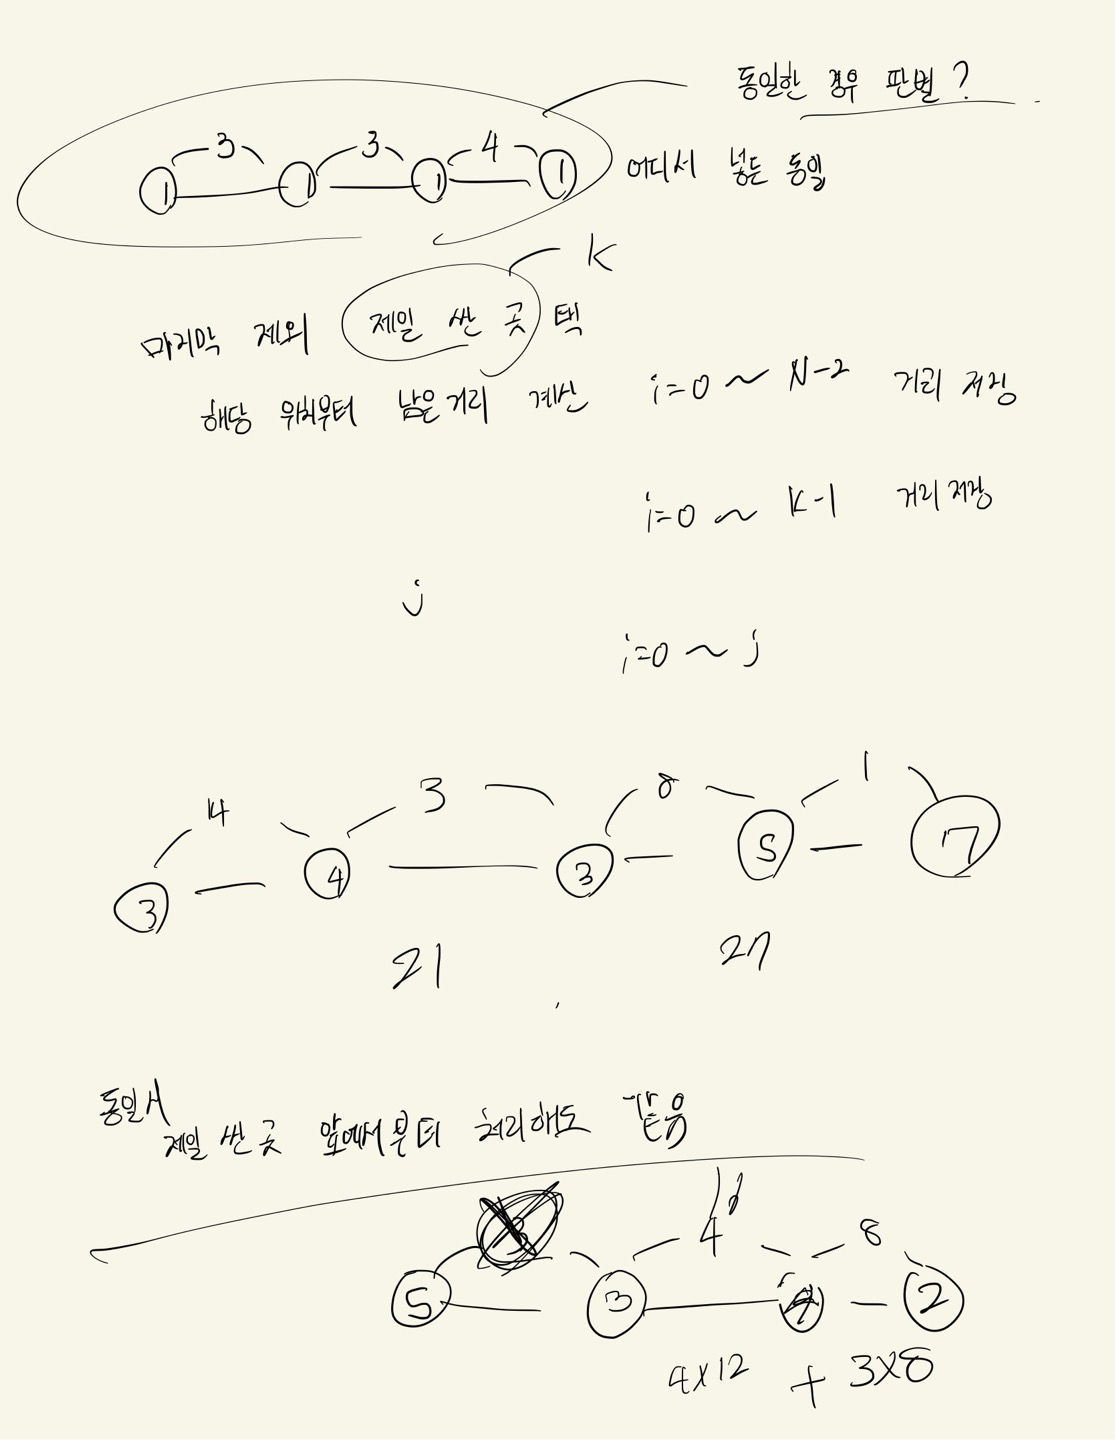 동일한 경우 판별?
3 3 4
1 1 1 1 어디서 넣든 동일
K
마지막 제외 제일 싼 곳 택
해당 위치부터 남은거리 계산 i=0 ~ N-2 거리 저장
i=0 ~ K-1 거리 저장
j
i=0 ~ j
4 3 8 1
3 4 3 5 7
21 27
동일시
제일 싼 곳 앞에서부터 처리해도 같음
4 8
5 3 2
4X12 + 3X8